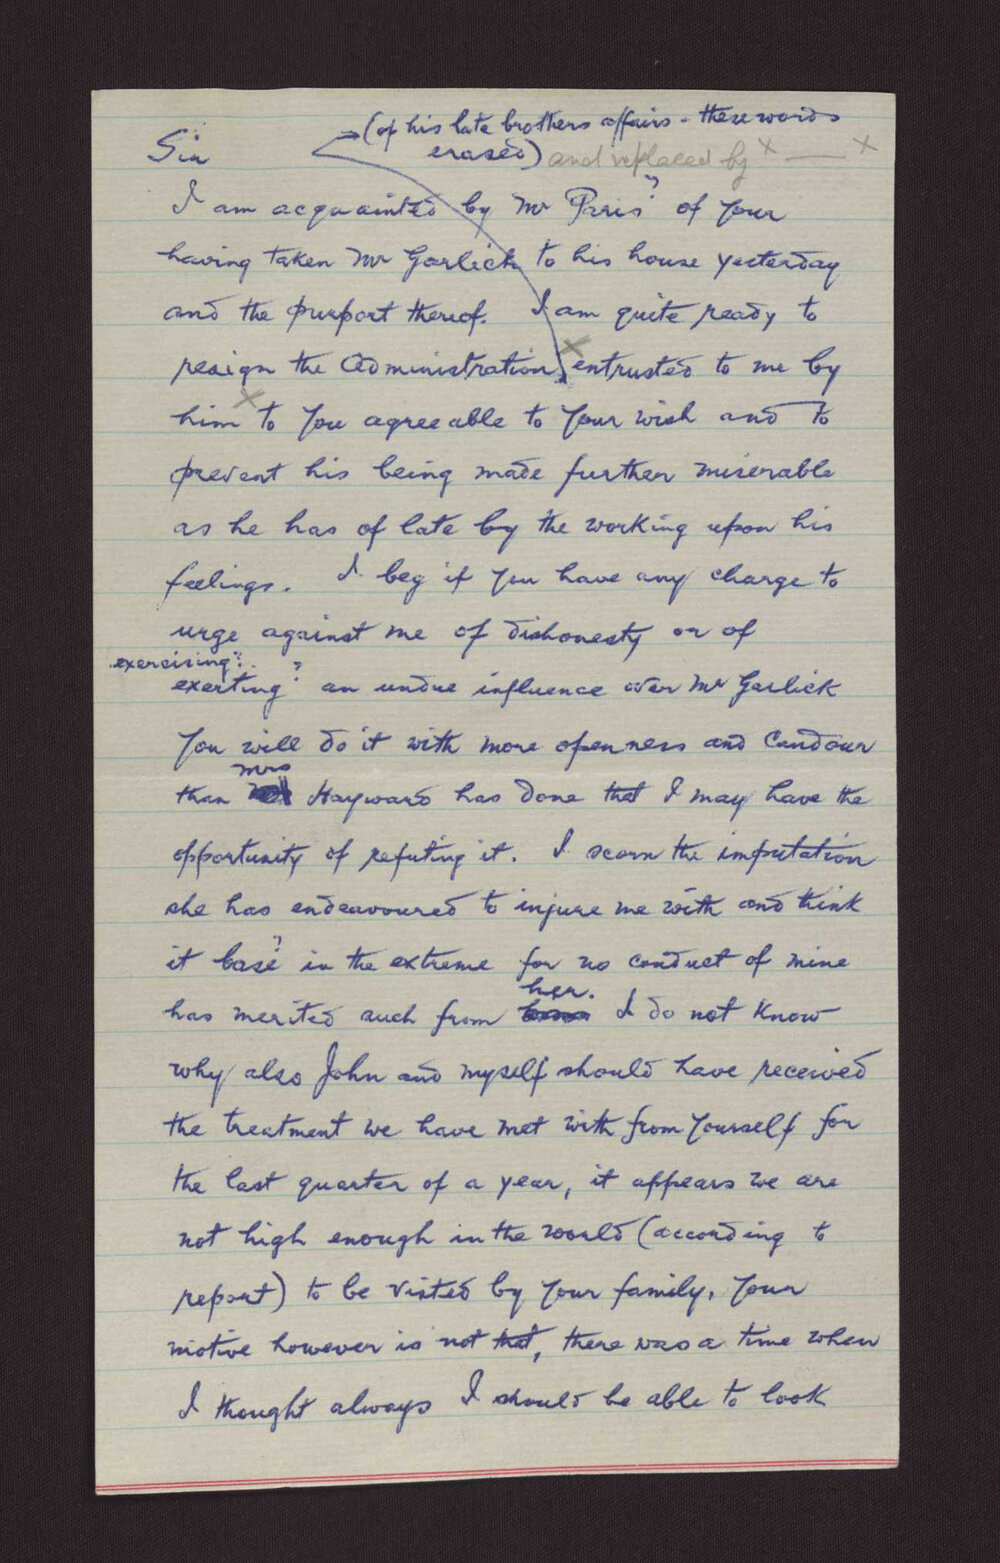 (of his late brothers affairs - these words
Sir erased) and replaced by x — x
I am acquainted by Mr Paris? of your
having taken Mr Garlick to his house yesterday
and the purport thereof. I am quite ready to
resign the Administration x entrusted to me by
him x to you agreeable to your wish and to
prevent his being made further miserable
as he has of late by the working upon his
feelings. I beg if you have any charge to
urge against me of dishonesty or of
exercising?
exerting? an undue influence over Mr Garlick
you will do it with more openness and candour
mrs
than Hayward has done that I may have the
opportunity of refuting it. I scorn the imputation
she has endeavoured to injure me with and think
it base? in the extreme for no conduct of mine
her.
has merited such from I do not know
why also John and myself should have received
the treatment we have met with from yourself for
the last quarter of a year, it appears we are
not high enough in the world (according to
report) to be visted by your family, your
motive however is not that, there was a time when
I thought always I should be able to look